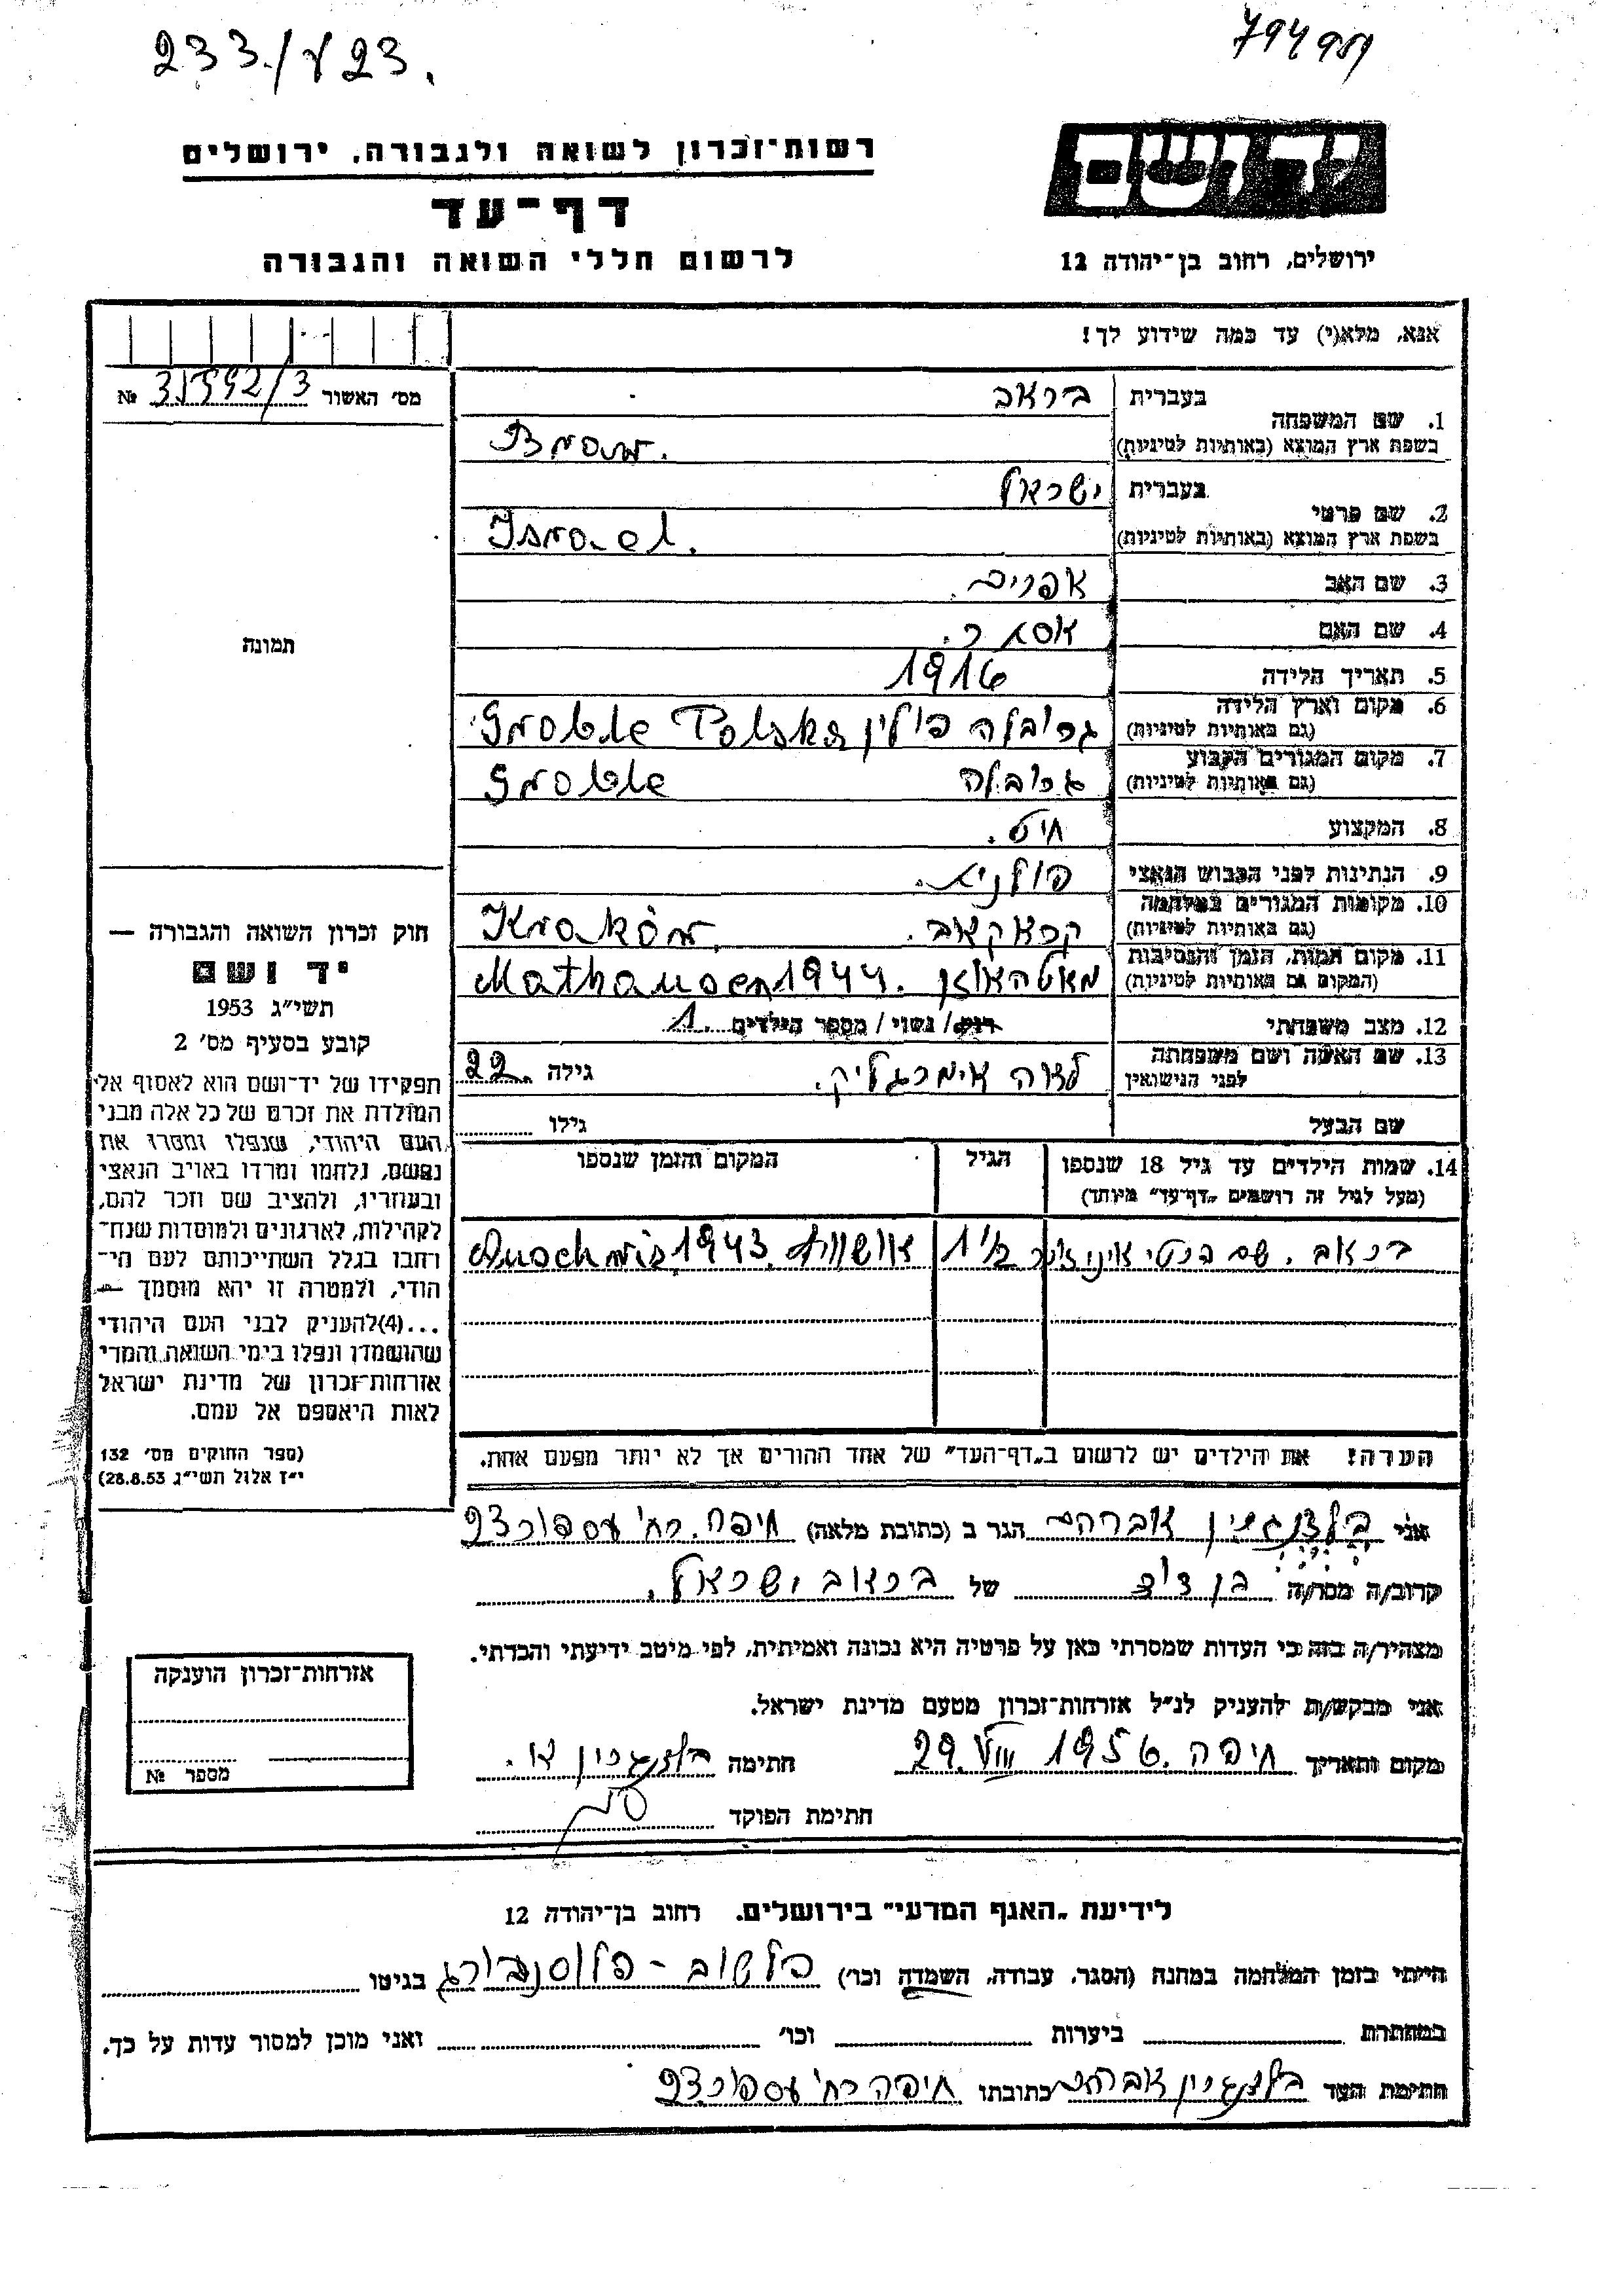 233./723.
794951
רשות־זכרון לשואה ולגבורה, ירושלים
יד ושם
דף־עד
לרשום חללי השואה והגבורה
ירושלים, רחוב בן־יהודה 12
אנא, מלא(י) עד כמה שידוע לך!
מס׳ האשור 31592/3 №
1. שם המשפחה
בעברית בראב
בשפת ארץ המוצא (באותיות לטיניות) Braw.
2. שם פרטי
בעברית ישראל
בשפת ארץ המוצא (באותיות לטיניות) Israel.
3. שם האב אפרים.
4. שם האם אסתר.
תמונה
5. תאריך הלידה 1916
6. מקום וארץ הלידה
(גם באותיות לטיניות) גרובלה פולין Groble Polska
7. מקום המגורים הקבוע
(גם באותיות לטיניות) גרובלה Groble
8. המקצוע חיט.
9. הנתינות לפני הכבוש הנאצי פולנית.
10. מקומות המגורים במלחמה
(גם באותיות לטיניות) קראקאב. Kraków.
11. מקום המות, הזמן והנסיבות
(המקום גם באותיות לטיניות) מאטהאוזן. Mathausen 1944
12. מצב משפחתי רווק/ נשוי/ מספר הילדים 1.
13. שם האשה ושם משפחתה
לפני הנישואין לאה גילה 22
שם הבעל גילו
14. שמות הילדים עד גיל 18 שנספו
(מעל לגיל זה רושמים „דף־עד״ מיוחד)
הגיל
המקום והזמן שנספו
בראב. שם פרטי אוושוויץ. 1943
חוק זכרון השואה והגבורה —
יד ושם
תשי״ג 1953
קובע בסעיף מס׳ 2
תפקידו של יד־ושם הוא לאסוף אל
המולדת את זכרם של כל אלה מבני
העם היהודי, שנפלו ומסרו את
נפשם, נלחמו ומרדו באויב הנאצי
ובעוזריו, ולהציב שם וזכר להם,
לקהילות, לארגונים ולמוסדות שנח־
רחבו בגלל השתייכותם לעם הי־
הודי, ולמטרה זו יהא מוסמך —
...(4)להעניק לבני העם היהודי
שהושמדו ונפלו בימי השואה והמרי
אזרחות־זכרון של מדינת ישראל
לאות היאספם אל עמם.
(ספר החוקים מס׳ 132
י״ז אלול תשי״ג 28.8.53)
הערה! את הילדים יש לרשום ב„דף־העד״ של אחד ההורים אך לא יותר מפעם אחת.
אני אברהם הגר ב (כתובת מלאה) חיפה. רח׳
קרוב/ה מסר/ה בן דוד של בראוב ישראל.
מצהיר/ה בזה כי העדות שמסרתי כאן על פרטיה היא נכונה ואמיתית, לפי מיטב ידיעתי והכרתי.
אני מבקש/ת להעניק לנ״ל אזרחות־זכרון מטעם מדינת ישראל.
מקום ותאריך חיפה. 29.VIII 1956 חתימה
חתימת הפוקד
אזרחות־זכרון הוענקה
מספר №
לידיעת „האגף המדעי״ בירושלים. רחוב בן־יהודה 12
הייתי בזמן המלחמה במחנה (הסגר, עבודה, השמדה וכו׳) פלשוב - פלוסנבורג בגיטו
במחתרת ביערות וכו׳ ואני מוכן למסור עדות על כך.
חתימת העד אברהם כתובתו חיפה רח׳